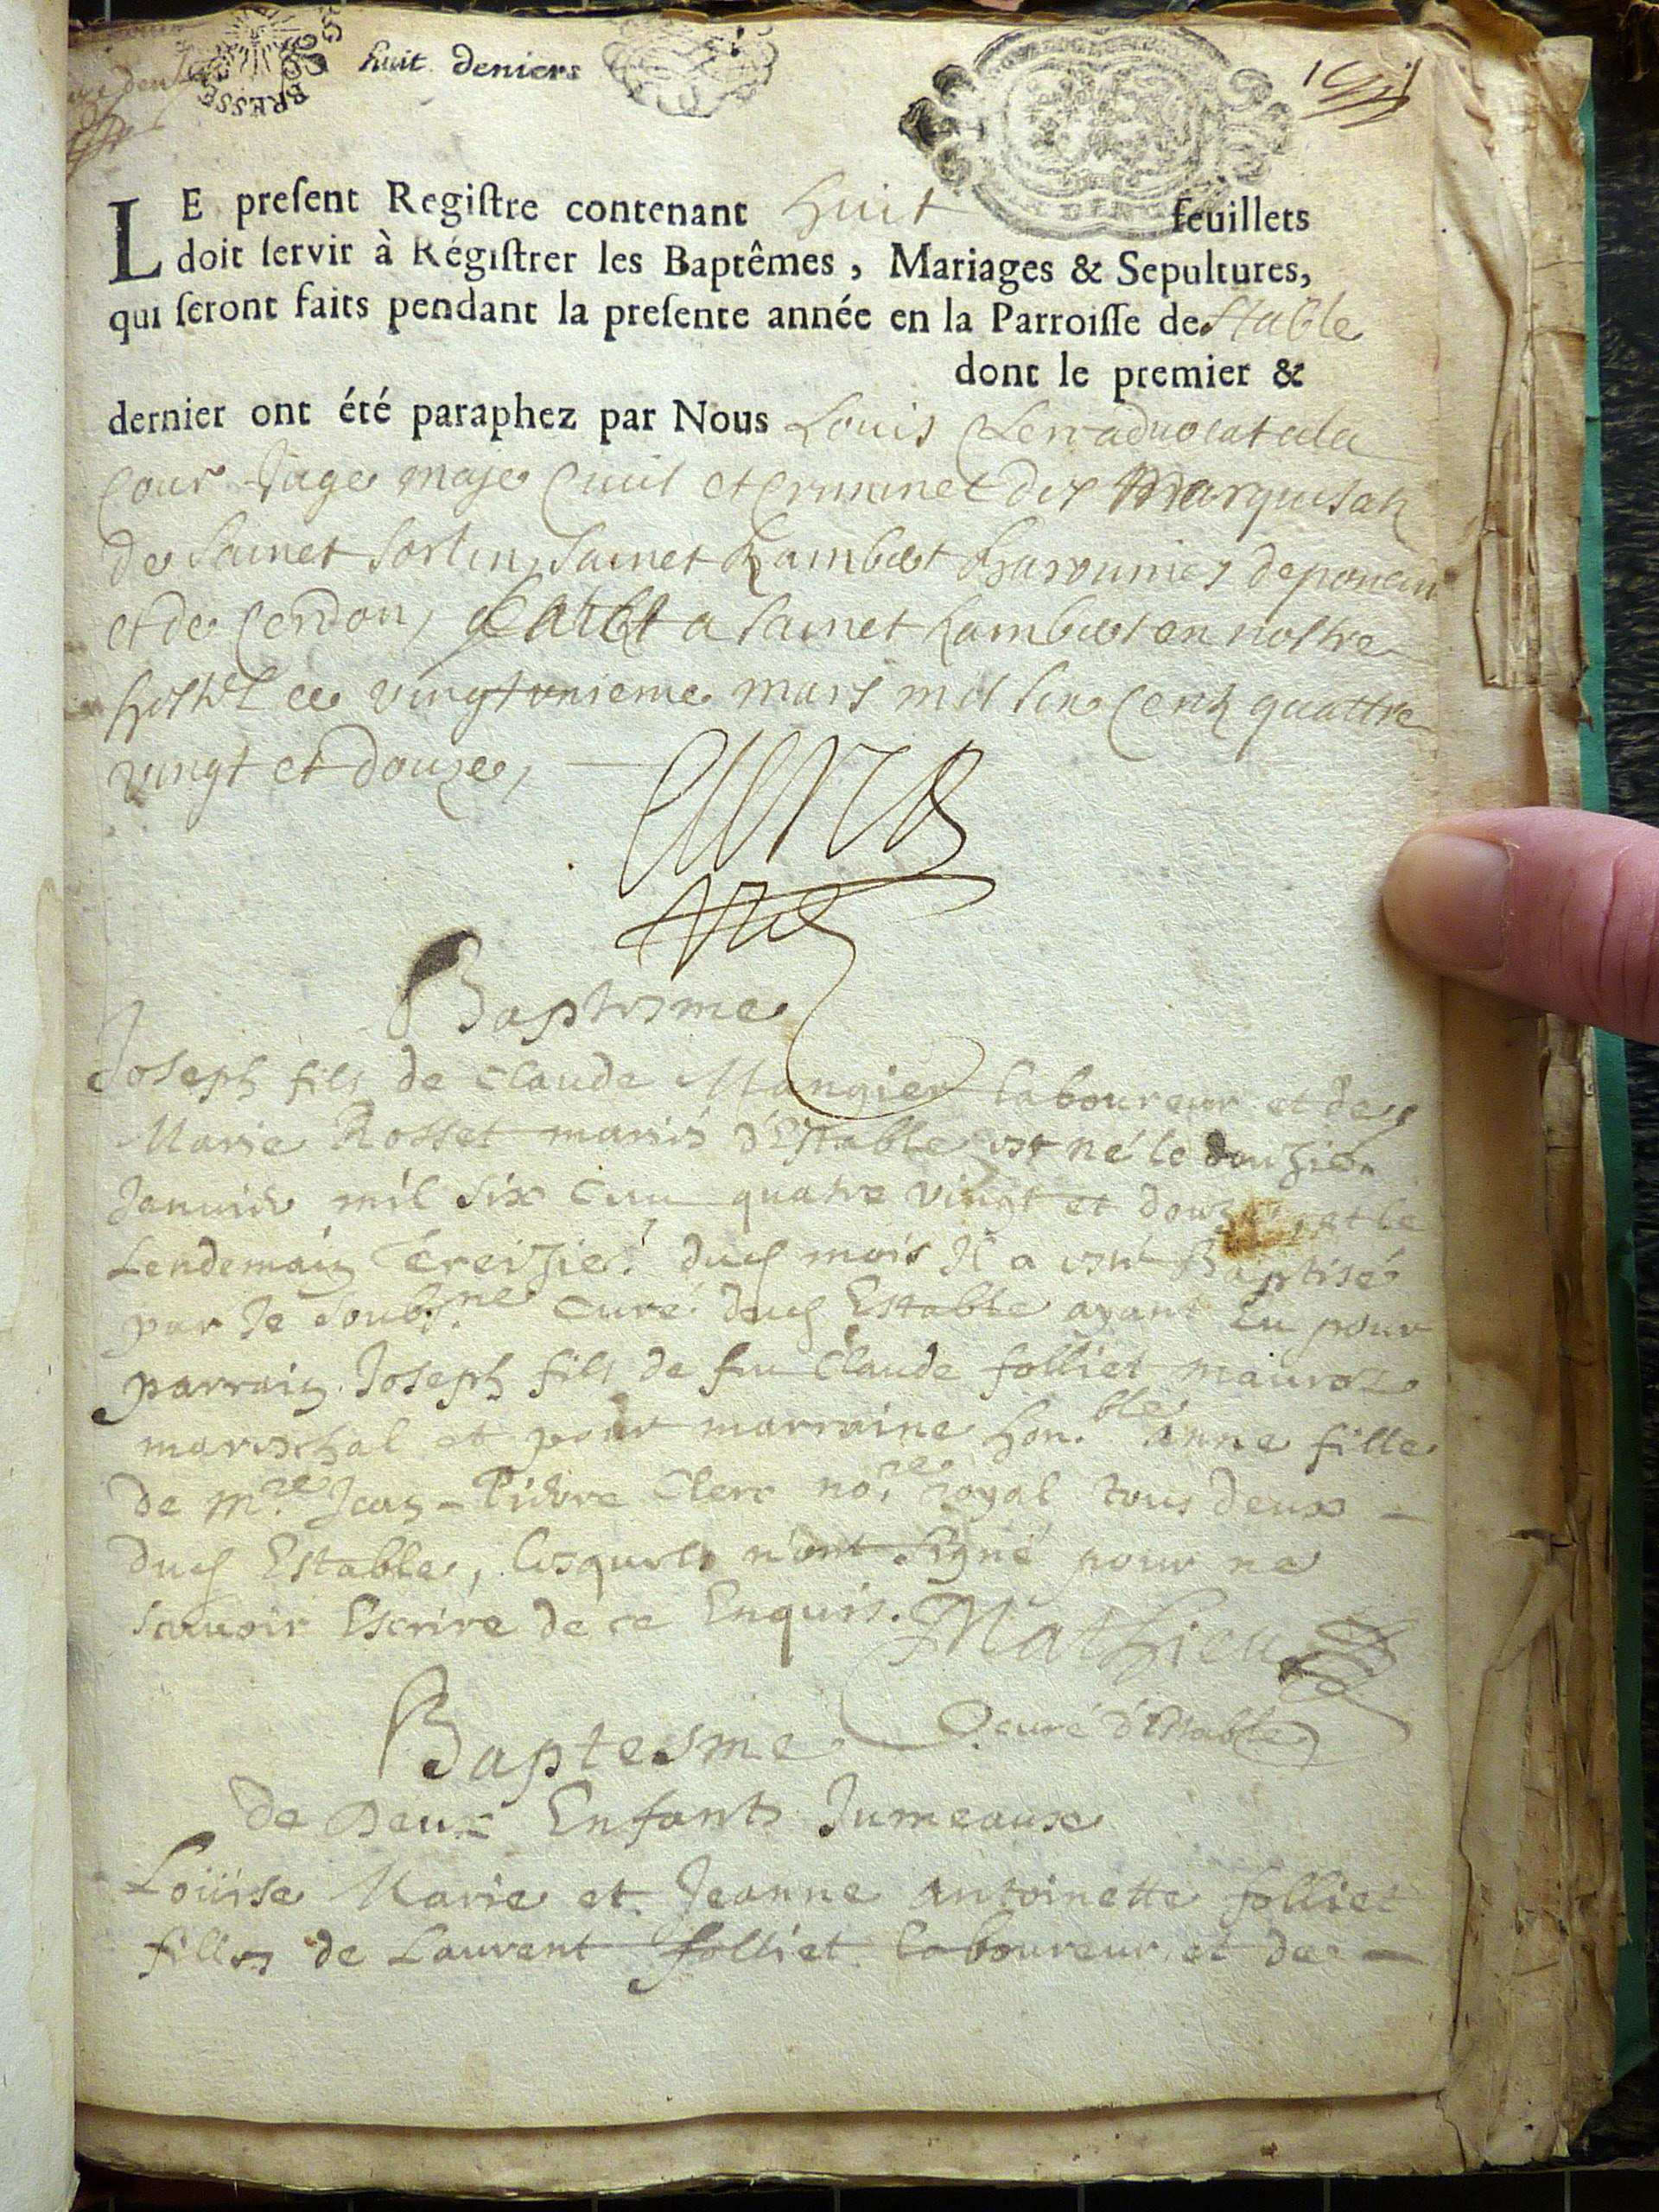 huit deniers
BRESSE
LE preſent Regiſtre contenant huit feuillets
doit ſervir à Régiſtrer les Baptêmes, Mariages & Sepultures,
qui ſeront faits pendant la preſente année en la Parroiſſe de Stable
dont le premier &
dernier ont été paraphez par Nous Louis Clerc advocat a la
Cour Juge maje Civil et Criminel des Marquisatz
de Sainct Sorlin, Sainct Rambert Baronnies de poncin
et de Cerdon, a Sainct Rambert en nostre
hostel ce vingt unieme mars mil six Centz quattre
vingt et douze,
Clerc
Baptesme
Joseph fils de Claude Mangier laboureur et de
Marie Rosset mariés d'Estable est né le douzie
Janvier mil six Cent quatre vingt et douze, et le
Lendemain treizie. dud mois Il a esté Baptisé
par Je soubs.né Curé dud Estable ayant Eu pour
parrain Joseph fils de feu Claude folliet
mareschal et pour marraine hon.ble anne fille
de M.re Jean-Pierre Clerc no.re royal tous deux –
dud Estable, lesquels n'ont signé pour ne
scavoir Escrire de ce Enquis. Mathieu
curé d'Estable
Baptesme
De Deux Enfants Jumeaux
Loüise Marie et Jeanne antoinette folliet
filles de Laurent folliet laboureur et de –